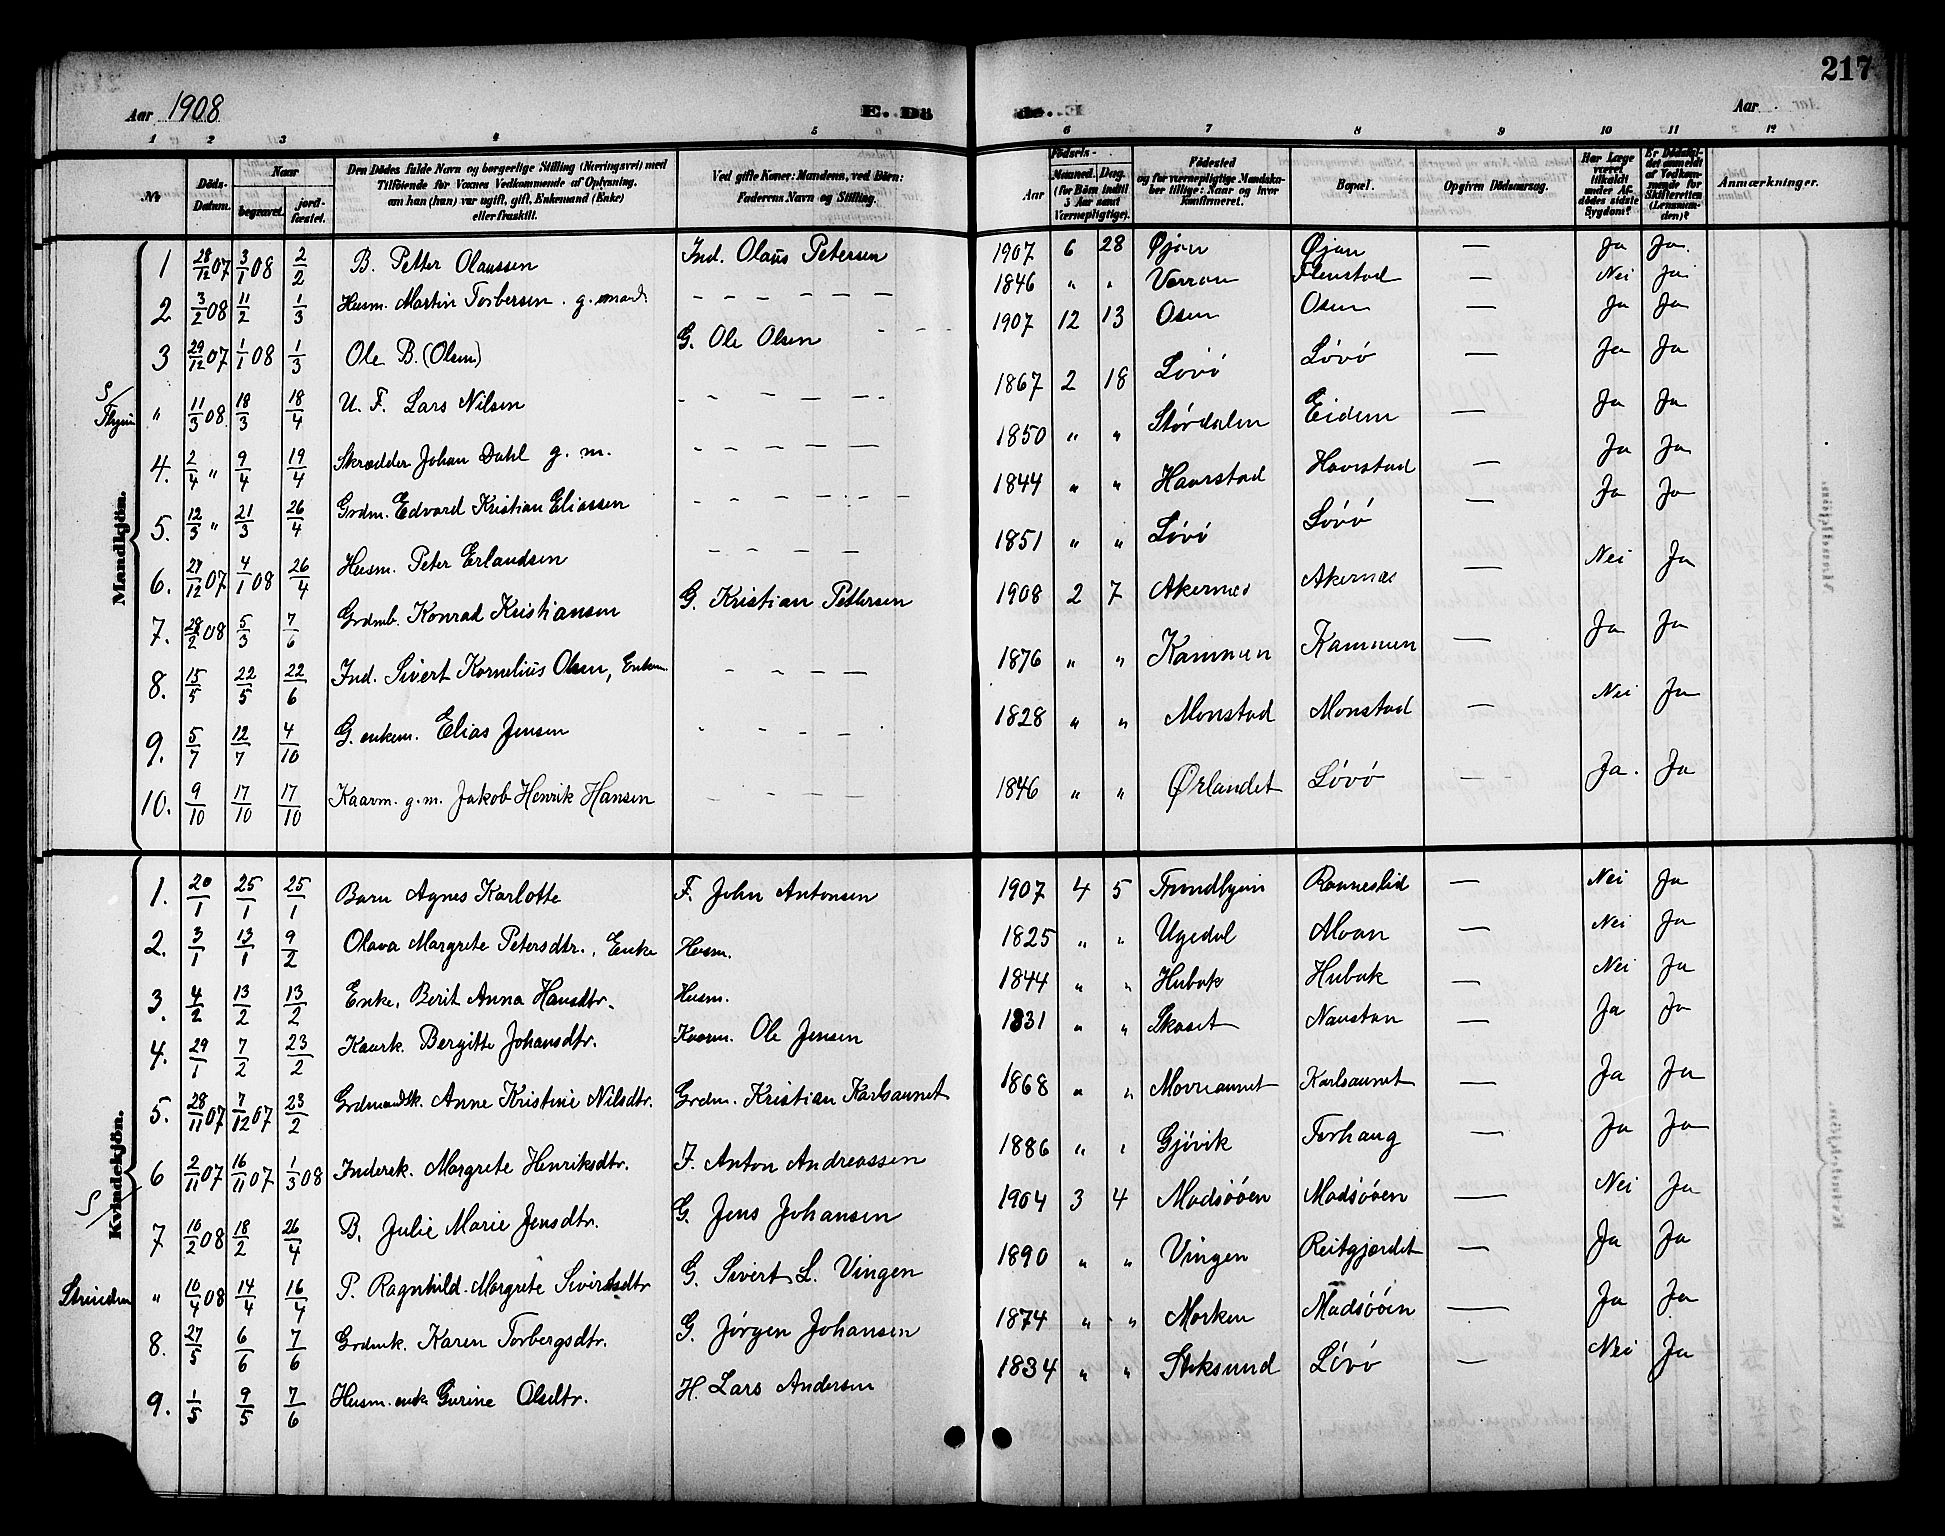 217
Aar 1908 E. Dö Aar
1 2 3 4 5 6 7 8 9 10 11 12
№ Döds-Datum. Naar begravet. jord-fæstet. Den Dödes fulde Navn og borgerlige Stilling (Næringsvei) med Tilföiende for Voxnes Vedkommende af Oplysning, om han (hun) var ugift, gift, Enkemand (Enke) eller fraskilt. Ved gifte Koner: Mandens, ved Börn: Faderens Navn og Stilling. Födsels- Aar Maaned. Dag. (for Börn indtil 3 Aar samt Værnepligtige). Födested og for værnepligtige Mandskaber tillige: Naar og hvor konfirmeret. Bopæl. Opgiven Dödsaarsag. Har Læge været tilkaldt under Afdödes sidste Sygdom? Er Dödsfaldet anmeldt af Vedkommende for Skifteretten (Lensmanden)? Anmærkninger.
Mandkjön.
1 28/12 07 3/1 08 2/2 B. Petter Olaussen Ind. Olaus Petersen 1907 6 28 Øjan Øjan — Ja Ja.
2 3/2 08 11/2 1/3 Husm. Martin Torbersen . g. mand — — — — — — 1846 " " Verran Flenstad — Nei Ja
3 29/12 07 1/1 08 1/3 Ole B. (Olsen) G. Ole Olsen 1907 12 13 Osen Osen — Ja Ja
" 11/3 08 18/3 18/4 U. F. Lars Nilsen — — — — — 1867 2 18 Løvø Løvø — Ja Ja
4. 2/4 " 9/4 19/4 Skrædder Johan Dahl g. m. — — — — — 1850 " " Størdalen Eidem — Ja Ja
5. 12/3 " 21/3 26/4 Grdm. Edvard Kristian Eliassen — — — — — 1844 " " Havrstad Havrstad — Ja Ja
6. 27/12 07 4/1 08 26/4 Husm. Peter Erlandsen — — — — 1851 " " Løvø Løvø — Ja Ja
7. 28/2 08 5/3 7/6 Grdmb. Konrad Kristiansen G. Kristian Pettersen 1908 2 7 Akernes Akernæs — Nei Ja
8. 15/5 22/5 22/6 Ind. Sivert Kornelius Olsen, Enkem. — — — — 1876 " " Kammen Kammen — Ja Ja
9. 5/7 12/7 4/10 G. enkem. Elias Jensen — — — — 1828 " " Monstad Monstad — Nei Ja
10. 9/10 17/10 17/10 Kaarm. g. m. Jakob Henrik Hansen — — — — 1846 " " Ørlandet Løvø — Ja. Ja
Kvindekjön.
1. 20/1 25/1 25/1 Barn Agnes Karlotte F. John Antonsen 1907 4 5 Ranneslid — Nei Ja
2. 3/1 13/1 9/2 Olava Margrete Petersdtr., Enke Husm. 1825 " " Ugedal Moan — Nei Ja
3. 4/2 13/2 13/2 Enke. Berit Anna Hansdtr. Husm. 1844 " " Hubak Hubak — Nei Ja
4. 29/1 7/2 23/2 Kaark. Bergitte Johansdtr. Kaarm. Ole Jensen 1831 " " Skaset Naustan — Ja Ja
5. 28/11 07 7/12 07 23/2 Grdmandsk. Anne Kristine Nilsdtr. Grdm. Kristian Karlsaunet 1868 " " Karlsaunet — Ja Ja
6 2/11 07 16/11 07 1/3 08 Inderk. Margrete Henriksdtr. F. Anton Andreassen 1886 " " Gjøvik Torhaug — Ja Ja
7 10/2 08 18/2 26/4 B. Julie Marie Jensdtr. G. Jens Johansen 1904 3 4 Madsøøen Madsøøen — Nei Ja
Strinden " 10/4 08 14/4 16/4 P. Ragnhild Margrete Sivertsdtr G. Sivert L. Vingen 1890 " " Vingen Reitgjærdet — Ja Ja
8. 27/5 6/6 7/6 Grdmk. Karen Torbergsdtr. G. Jørgen Johansen 1874 " " Morken Madsøøen — Ja Ja
9. 1/5 9/5 7/6 Husm. enke Gurine Olsdtr. H. Lars Andersen 1834 " " Stoksund Løvø — Nei Ja